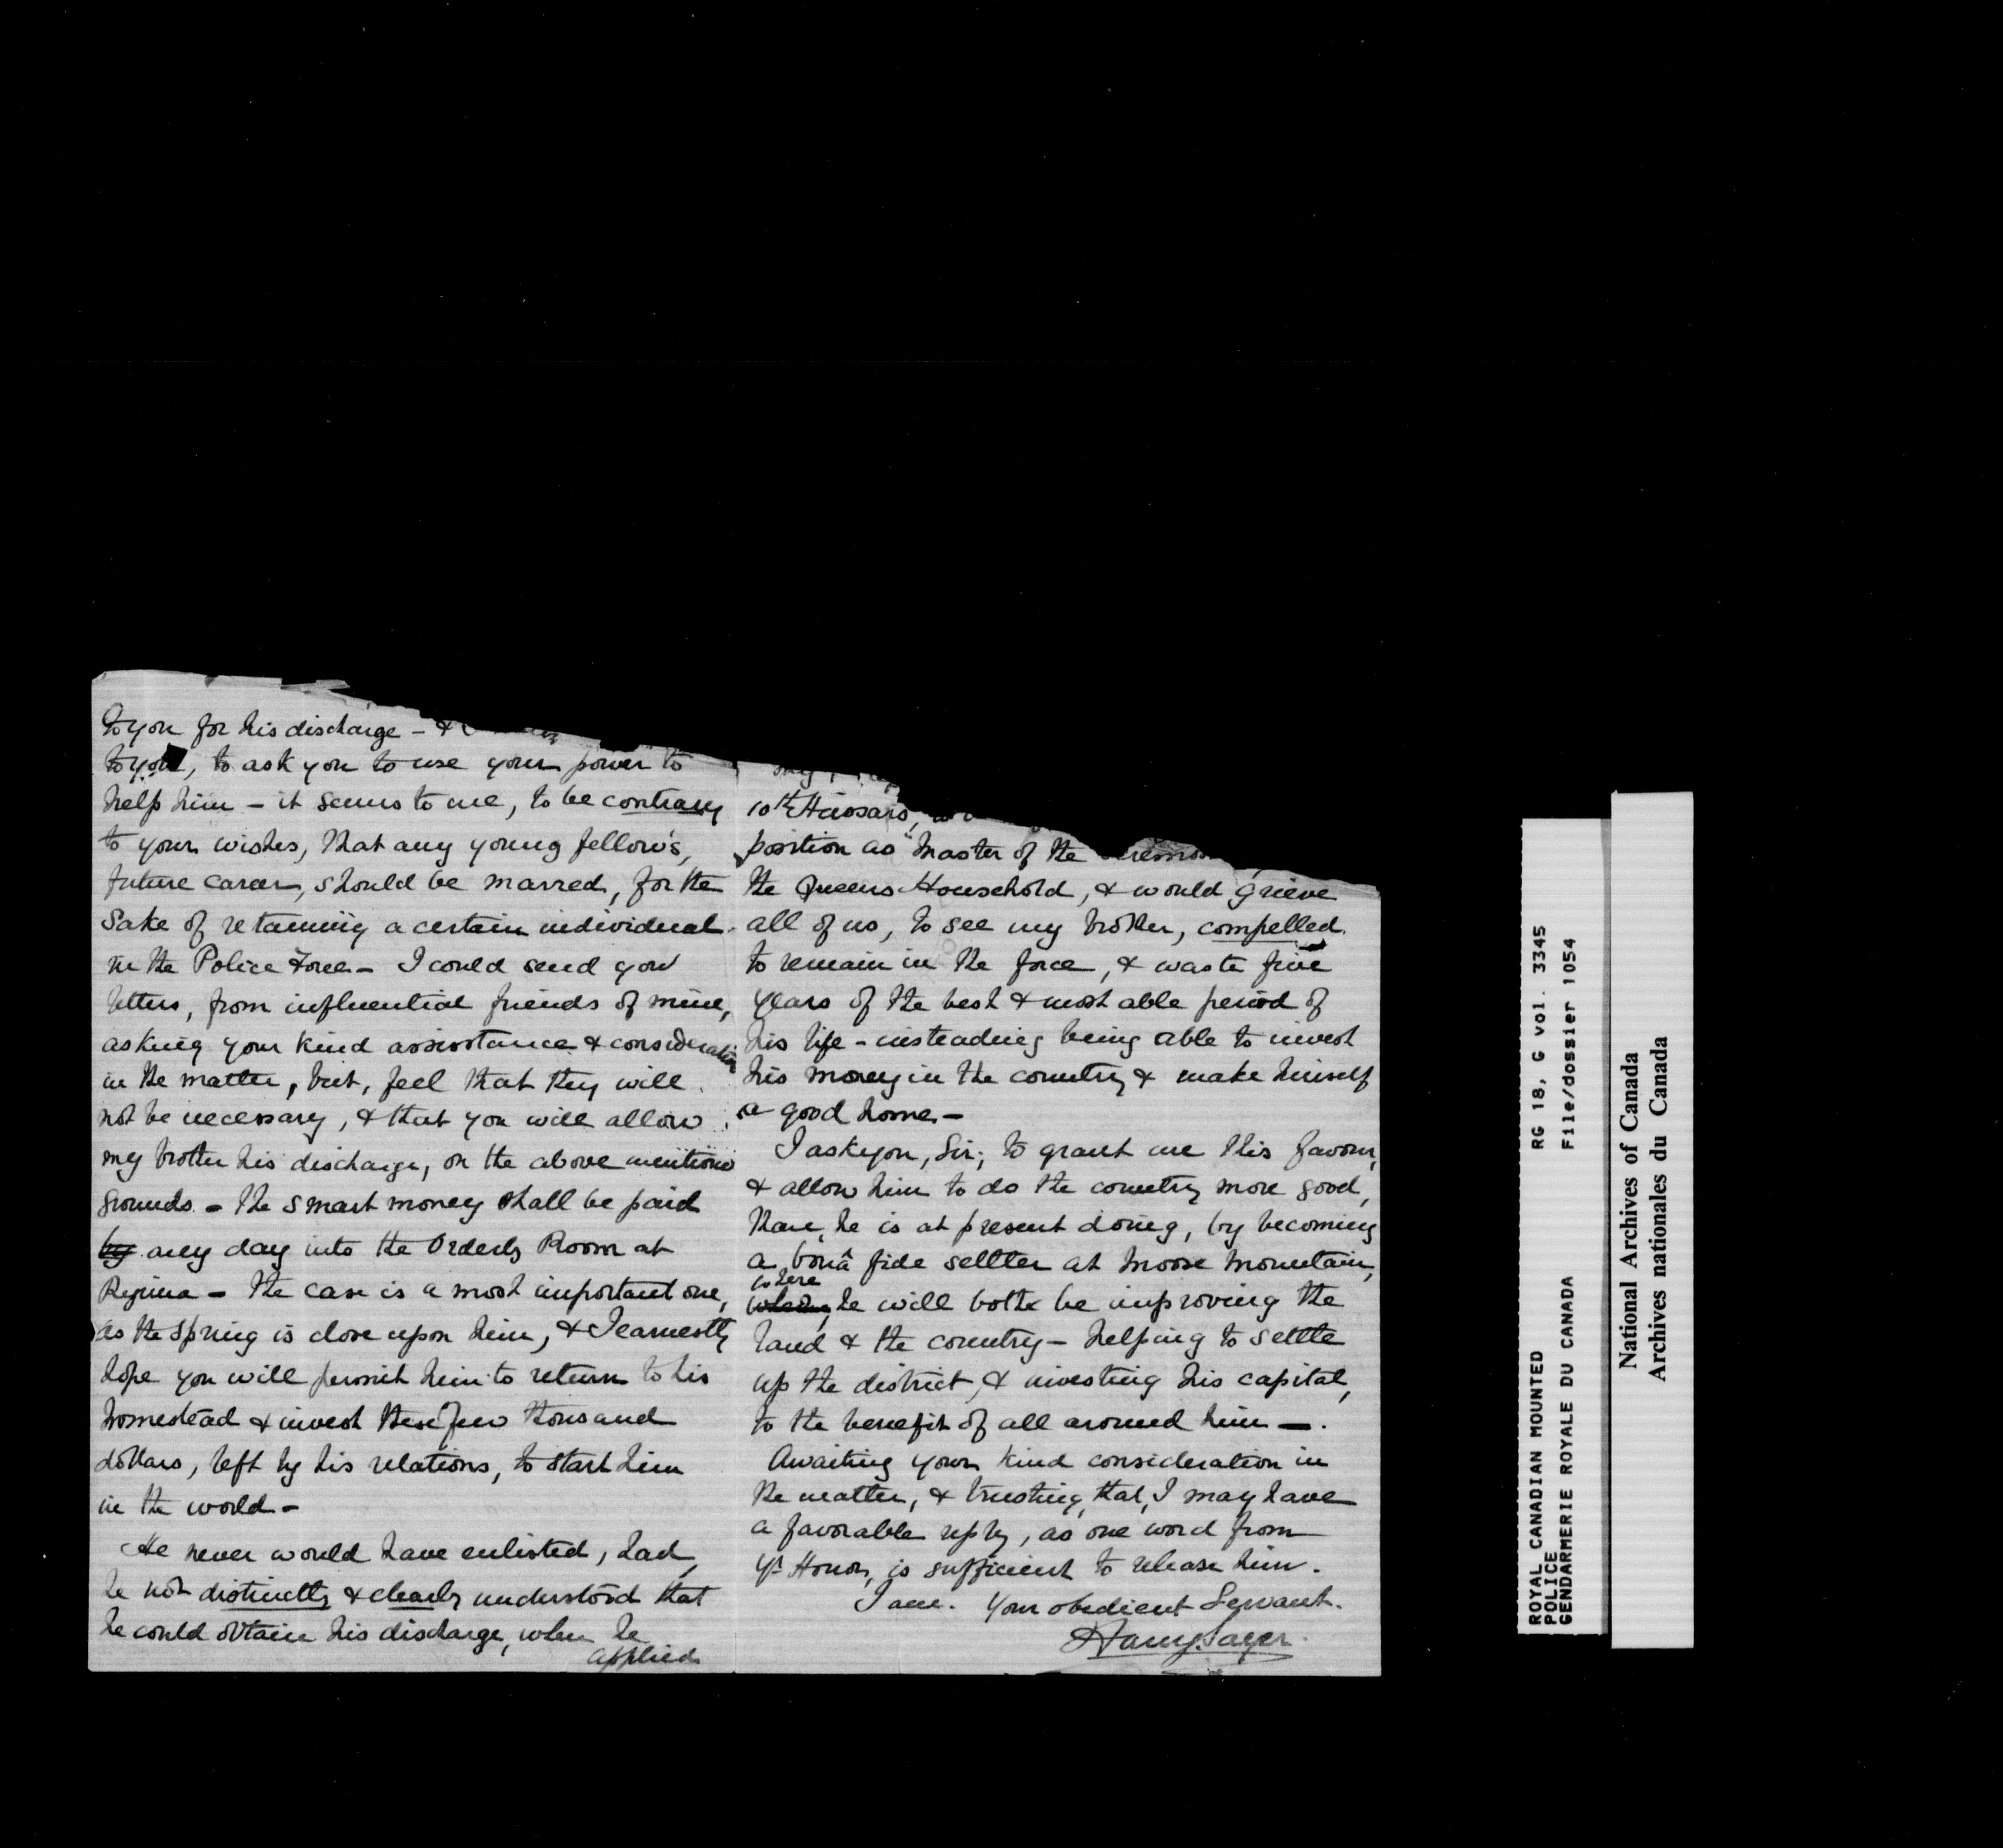 to you for his discharge - &
to you, to ask you to use your power to
help him - it seems to me, to be contrary
to your wishes, that any young fellow's,
future career, should be marred, for the
sake of retaining a certain individual
in the Police Force - I could send you
letters, from influential friends of mine,
asking your kind assisstance & consideration
in the matter, but, feel that they will
not be necessary, & that you will allow
my brother his discharge, on the above mentioned
grounds. - The smart money shall be paid
by any day into the Orderly Room at
Regina - The case is a most important one,
as the spring is close upon him, & I earnestly
hope you will permit him to return to his
homestead & invest these few thousand
dollars, left by his relations, to start him
in the world -
He never would have enlisted, had,
he not distinctly & clearly understood that
he could obtain his discharge, when he
applied
10th Hussars,
position as "Master of the
the Queens Household, & would grieve
all of us, to see my brother, compelled
to remain in the force, & waste five
years of the best & most able period of
his life - insteading being able to invest
his money in the country & make himself
a good home -
I ask you, Sir; to grant me this favour,
& allow him to do the country more good,
than, he is at present doing, by becoming
a bonâ fide settler at Moose Mountain,
where
he will both be improving the
land & the country - helping to settle
up the district, & investing his capital,
to the benefit of all around him -.
Awaiting your kind consideration in
the matter, & trusting, that, I may have
a favorable reply, as one word from
Yr Honor, is sufficient to release him.
I am. Your obedient Servant.
Harry Sayer.
ROYAL CANADIAN MOUNTED
POLICE
GENDARMERIE ROYALE DU CANADA
RG 18, G vol. 3345
File/dossier 1054
National Archives of Canada
Archives nationales du Canada